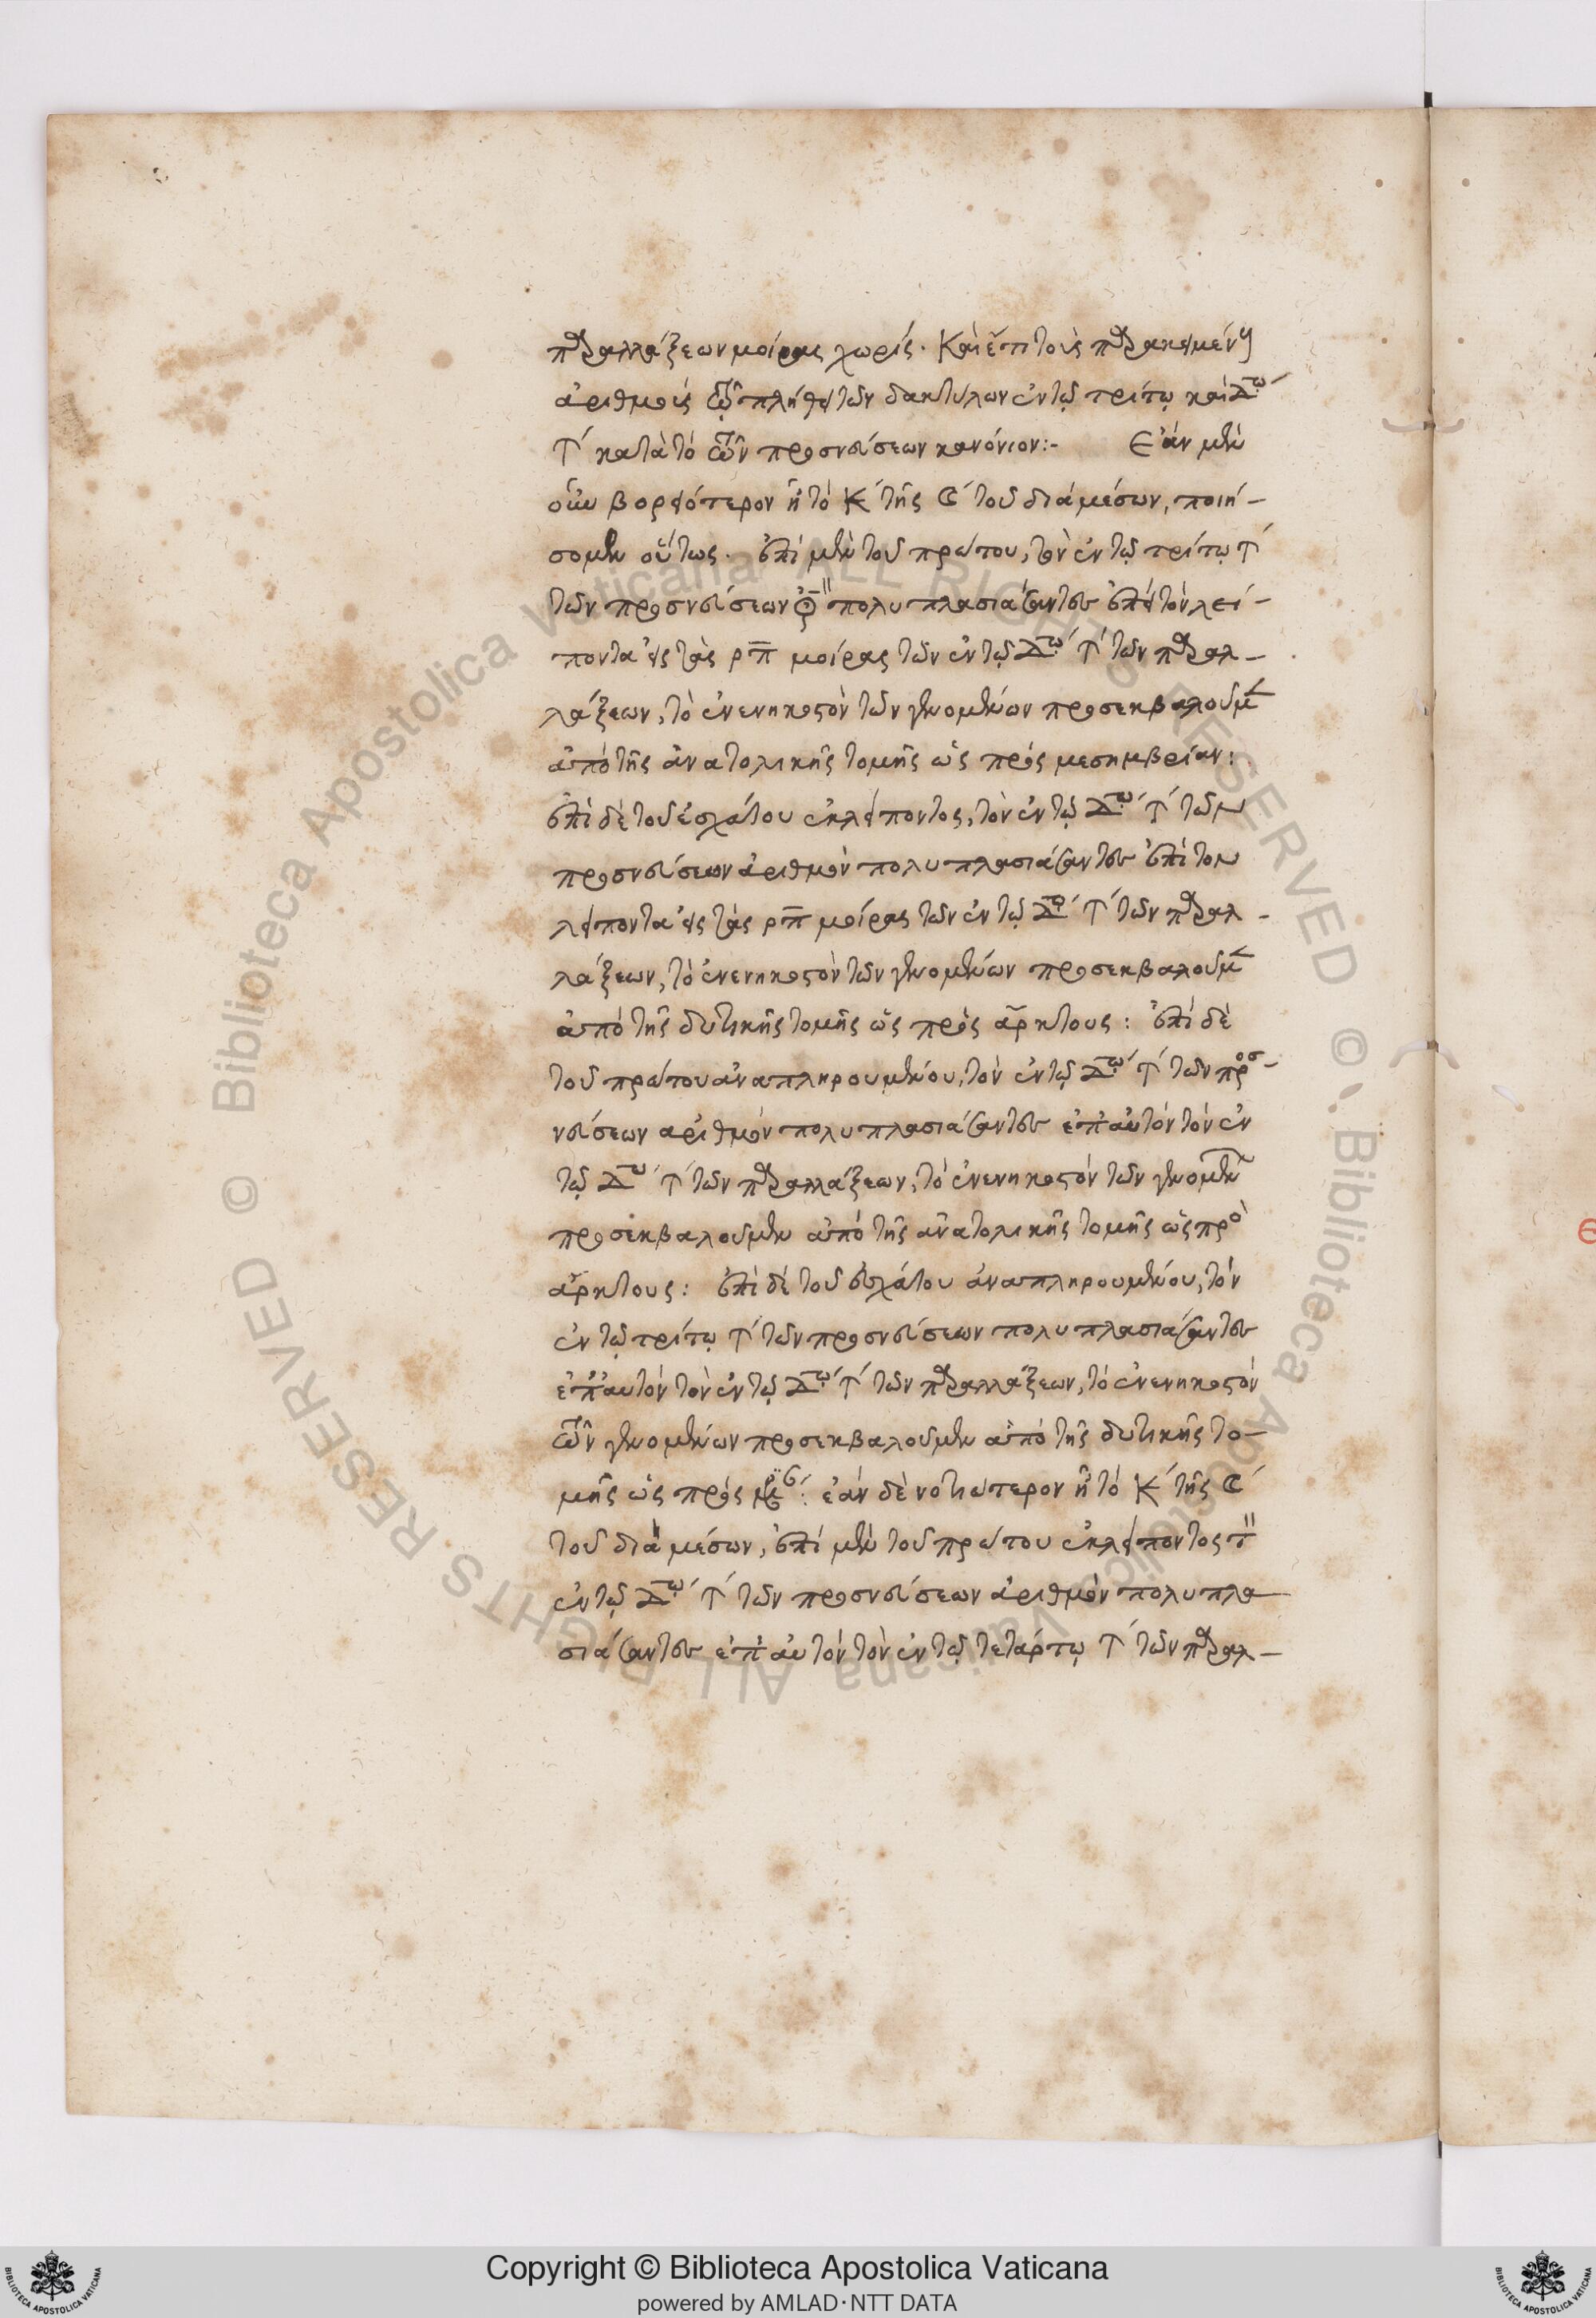 παραλλάξεων μοίρας χωρίς. Καὶ ἔτι τοὺς παρακειμένους
ἀριθμοὺς τῷ πλήθει τῶν δακτύλων ἐν τῷ τρίτῳ καὶ Δῳ´
κατὰ τὸ τῶν προσνεύσεων κανόνιον:- Ἐὰν μὲν
οὖν βορειότερον ᾖ τὸ Κ´ τῆς ☾´ τοῦ διὰ μέσων, ποιή-
σομεν οὕτως. ἐπὶ μὲν τοῦ πρώτου, τὸν ἐν τῷ τρίτῳ
τῶν προσνεύσεων πολυπλασιάσαντες ἐπὶ τὸν λεί-
ποντα εἰς τὰς ρπ μοίρας τῶν ἐν τῷ Δῳ´ τῶν παραλ-
λάξεων, τὸ ἐνενηκοστὸν τῶν γενομένων προσεκβαλοῦμεν
ἀπὸ τῆς ἀνατολικῆς τομῆς ὡς πρὸς μεσημβρίαν:
ἐπὶ δὲ τοῦ ἐσχάτου ἐκλείποντος, τὸν ἐν τῷ Δῳ´ τῶν
προσνεύσεων ἀριθμὸν πολυπλασιάσαντες ἐπὶ τὸν
λείποντα εἰς τὰς ρπ μοίρας τῶν ἐν τῷ Δῳ´ τῶν παραλ-
λάξεων, τὸ ἐνενηκοστὸν τῶν γενομένων προσεκβαλοῦμεν
ἀπὸ τῆς δυτικῆς τομῆς ὡς πρὸς ἄρκτους: ἐπὶ δὲ
τοῦ πρώτου ἀναπληρουμένου, τὸν ἐν τῷ Δῳ´ τῶν προσ-
νεύσεων ἀριθμὸν πολυπλασιάσαντες ἐπ' αὐτὸν τὸν ἐν
τῷ Δῳ´ τῶν παραλλάξεων, τὸ ἐνενηκοστὸν τῶν γενομένων
προσεκβαλοῦμεν ἀπὸ τῆς ἀνατολικῆς τομῆς ὡς πρὸς
ἄρκτους: ἐπὶ δὲ τοῦ ἐσχάτου ἀναπληρουμένου, τὸν
ἐν τῷ τρίτῳ τῶν προσνεύσεων πολυπλασιάσαντες
ἐπ' αὐτὸν τὸν ἐν τῷ Δῳ´ τῶν παραλλάξεων, τὸ ἐνενηκοστὸν
τῶν γενομένων προσεκβαλοῦμεν ἀπὸ τῆς δυτικῆς το-
μῆς ὡς πρὸς: ἐὰν δὲ νοτιώτερον ᾖ τὸ Κ´ τῆς ☾´
τοῦ διὰ μέσων, ἐπὶ μὲν τοῦ πρώτου ἐκλείποντος τὸν
ἐν τῷ Δῳ´ τῶν προσνεύσεων ἀριθμὸν πολυπλα
σιάσαντες ἐπ' αὐτὸν τὸν ἐν τῷ τετάρτῳ τῶν παραλ-
Copyright © Biblioteca Apostolica Vaticana
powered by AMLAD·NTT DATA